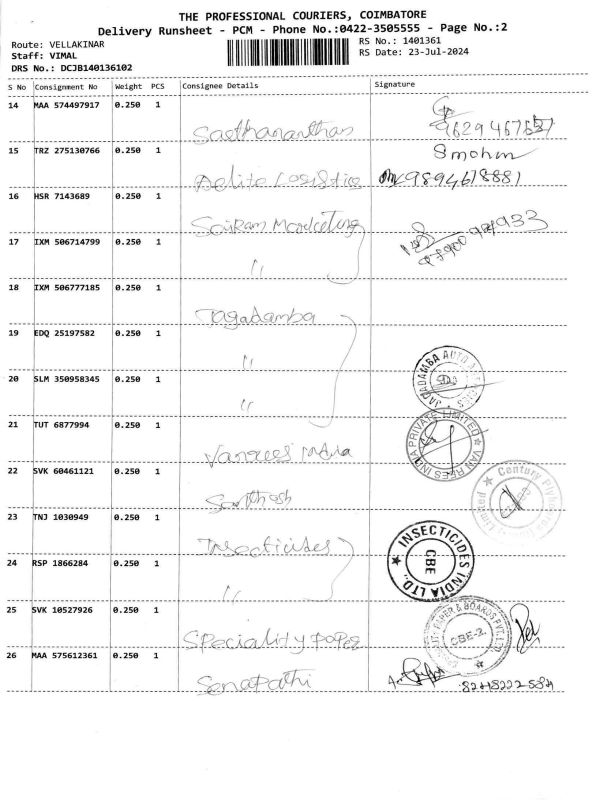 THE PROFESSIONAL COURIERS, COIMBATORE
Delivery Runsheet - PCM - Phone No.:0422-3505555 - Page No.:2
Route: VELLAKINAR
RS No.: 1401361
Staff: VIMAL
RS Date: 23-Jul-2024
DRS No.: DCJB140136102
S No Consignment No Weight PCS Consignee Details Signature
14 MAA 574497917 0.250 1
Sasthananthan
9629467637
15 TRZ 275130766 0.250 1
Smohm
Aelite Logistics 9894678881
16 HSR 7143689 0.250 1
Sairam Marketing
17 IXM 506714799 0.250 1
"
18 IXM 506777185 0.250 1
Jagadamba
19 EDQ 25197582 0.250 1
"
JAGADAMBA AUTO
20 SLM 350958345 0.250 1
"
21 TUT 6877994 0.250 1
Vanrees India
VAN REES INDIA PRIVATE LIMITED
22 SVK 60461121 0.250 1
Santhosh
Century Limited
23 TNJ 1030949 0.250 1
Insecticides
INSECTICIDES INDIA LTD.,
CBE
24 RSP 1866284 0.250 1
"
25 SVK 10527926 0.250 1
Speciality paper
PAPER & BOARDS PVT. LTD.
CBE-2.
26 MAA 575612361 0.250 1
Senapathi